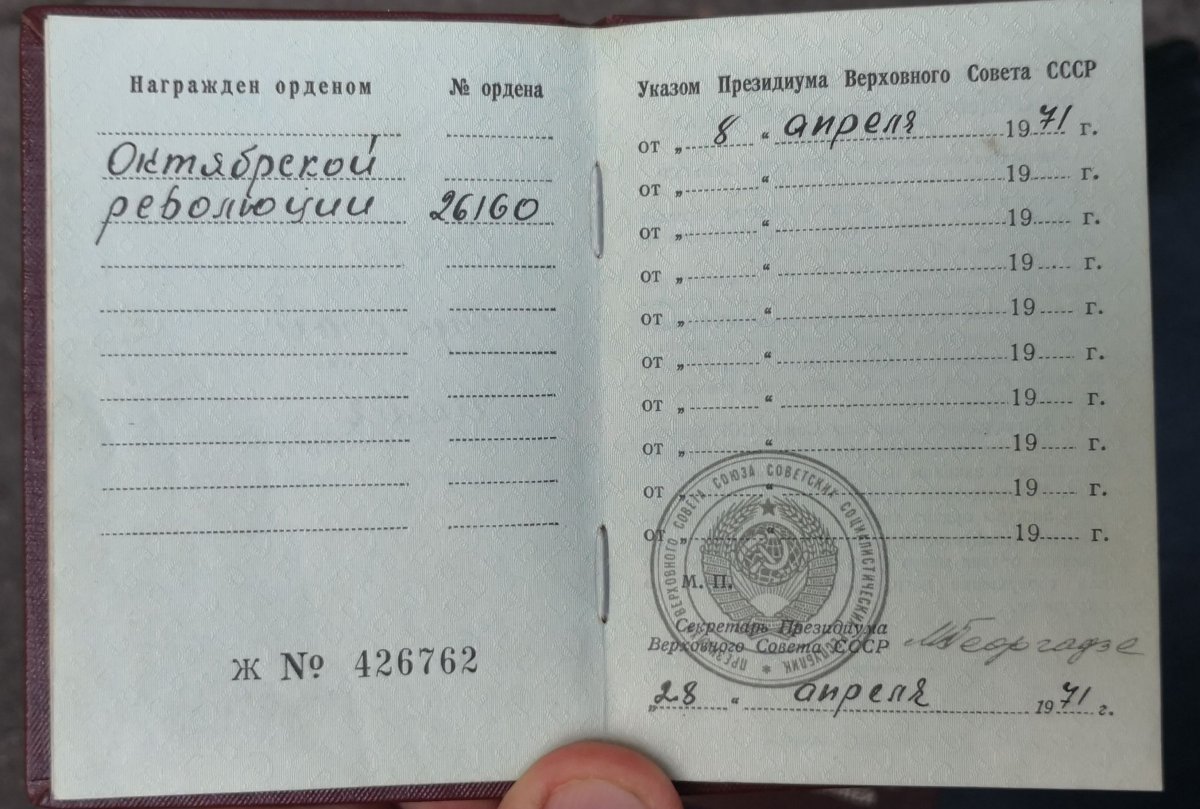 Награжден орденом
№ ордена
Октябрской
революции
26160
Ж № 426762
Указом Президиума Верховного Совета СССР
от „ 8 “ апреля 1971 г.
от „ “ 19 г.
от „ “ 19 г.
от „ “ 19 г.
от „ “ 19 г.
от „ “ 19 г.
от „ “ 19 г.
от „ “ 19 г.
от „ “ 19 г.
от „ “ 19 г.
М. П.
ПРЕЗИДИУМ ВЕРХОВНОГО СОВЕТА СОЮЗА СОВЕТСКИХ СОЦИАЛИСТИЧЕСКИХ РЕСПУБЛИК
Секретарь Президиума
Верховного Совета СССР
МГеоргадзе
„28“ апреля 1971 г.